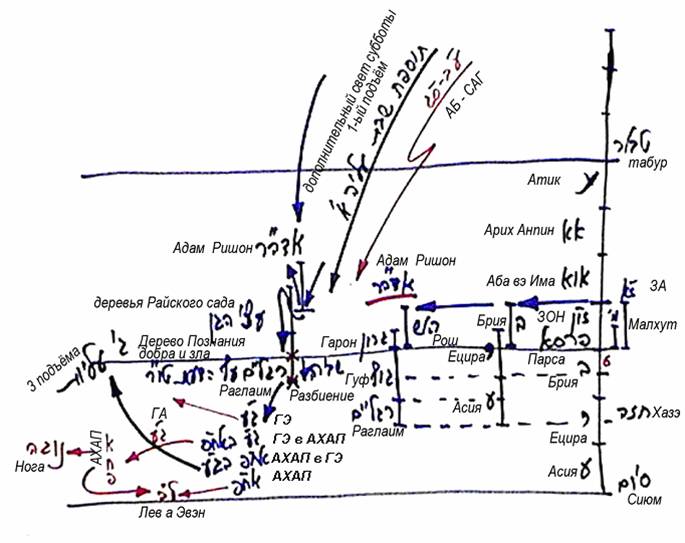 дополнительный свет субботы
1-ый подъём
תוספת שבת עליה א'
ע"ב-ס"ג
АБ - САГ
טבור
табур
Атик
ע
Арих Анпин
אא
Аба вэ Има
או"א
ЗА
ЗОН
Малхут
Адам Ришон
אדה"ר
Адам Ришон
אדה"ר
деревья Райского сада
עצי הגן
Дерево Познания
добра и зла
3 подъёма
ג' עליות
Гарон
גרון
Рош
ראש
Брия
ב
Ецира
Парса
פרסא
6
Раглаим
רגלים
Разбиение
שבירה
Гуф
גוף
Раглаим
רגלים
Асия
ע
Брия
ב
Хазэ
חזה
Ецира
י
Асия
ע
Сиюм
סיום
ГЭ
ג"ע
ГЭ в АХАП
ג"ע באח"פ
АХАП в ГЭ
אח"פ בג"ע
АХАП
אח"פ
ГА
ג"ע
АХАП
Нога
נוגה
Лев а Эвэн
ל"ב